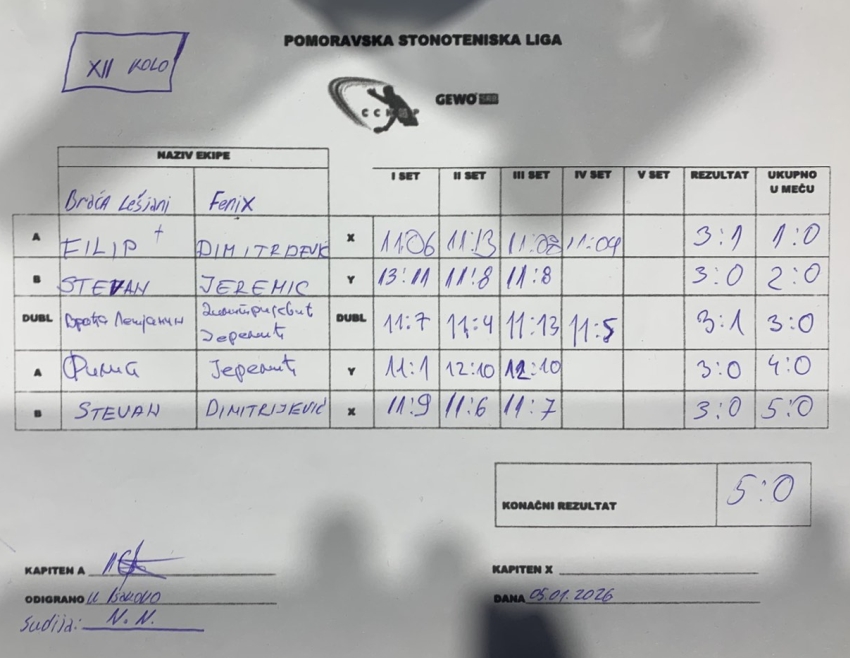 XII KOLO
POMORAVSKA STONOTENISKA LIGA
GEWO
NAZIV EKIPE I SET II SET III SET IV SET V SET REZULTAT UKUPNO U MEČU
Braća Lešjani Fenix
A FILIP + DIMITRIJEVIĆ X 11:06 11:13 11:08 11:09 3:1 1:0
B STEVAN JEREMIC Y 13:11 11:8 11:8 3:0 2:0
DUBL Браћа Лешјанин Димитријевић Јеремић DUBL 11:7 11:4 11:13 11:5 3:1 3:0
A Филип Јеремић Y 11:1 12:10 12:10 3:0 4:0
B STEVAN DIMITRIJEVIĆ X 11:9 11:6 11:7 3:0 5:0
KONAČNI REZULTAT 5:0
KAPITEN A KAPITEN X
ODIGRANO U DANA 05.01.2026
Sudija: N.N.